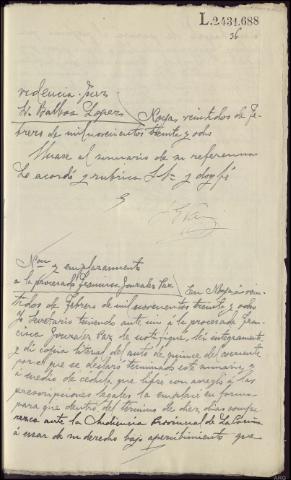 L.2431.688
36
videncia-Juez
Sr. Balboa Lopez Noya veintidos de Fe-
brero de mil novecientos treinta y ocho
Unase al sumario de su referencia
Lo acordó y rubrica S.Sª y doy fé
Non y emplazamiento
a la procesada Francisca Gonzalez Paz En Noya vein-
tidos de Febrero de mil novecientos treinta y ocho
Yo Secretario teniendo ante mi á la procesada Fran-
cisca Gonzalez Paz la notifiqué, leí integramente
y dí copia literal del auto de quince del corriente
por el que se declaró terminado este sumario y
á medio de cedula que libré con arreglo á las
prescripciones legales la emplacé en forma
para que dentro del termino de diez dias compa-
rezca ante la Audiencia Provincial de La Coruña
á usar de su derecho bajo apercibimiento que